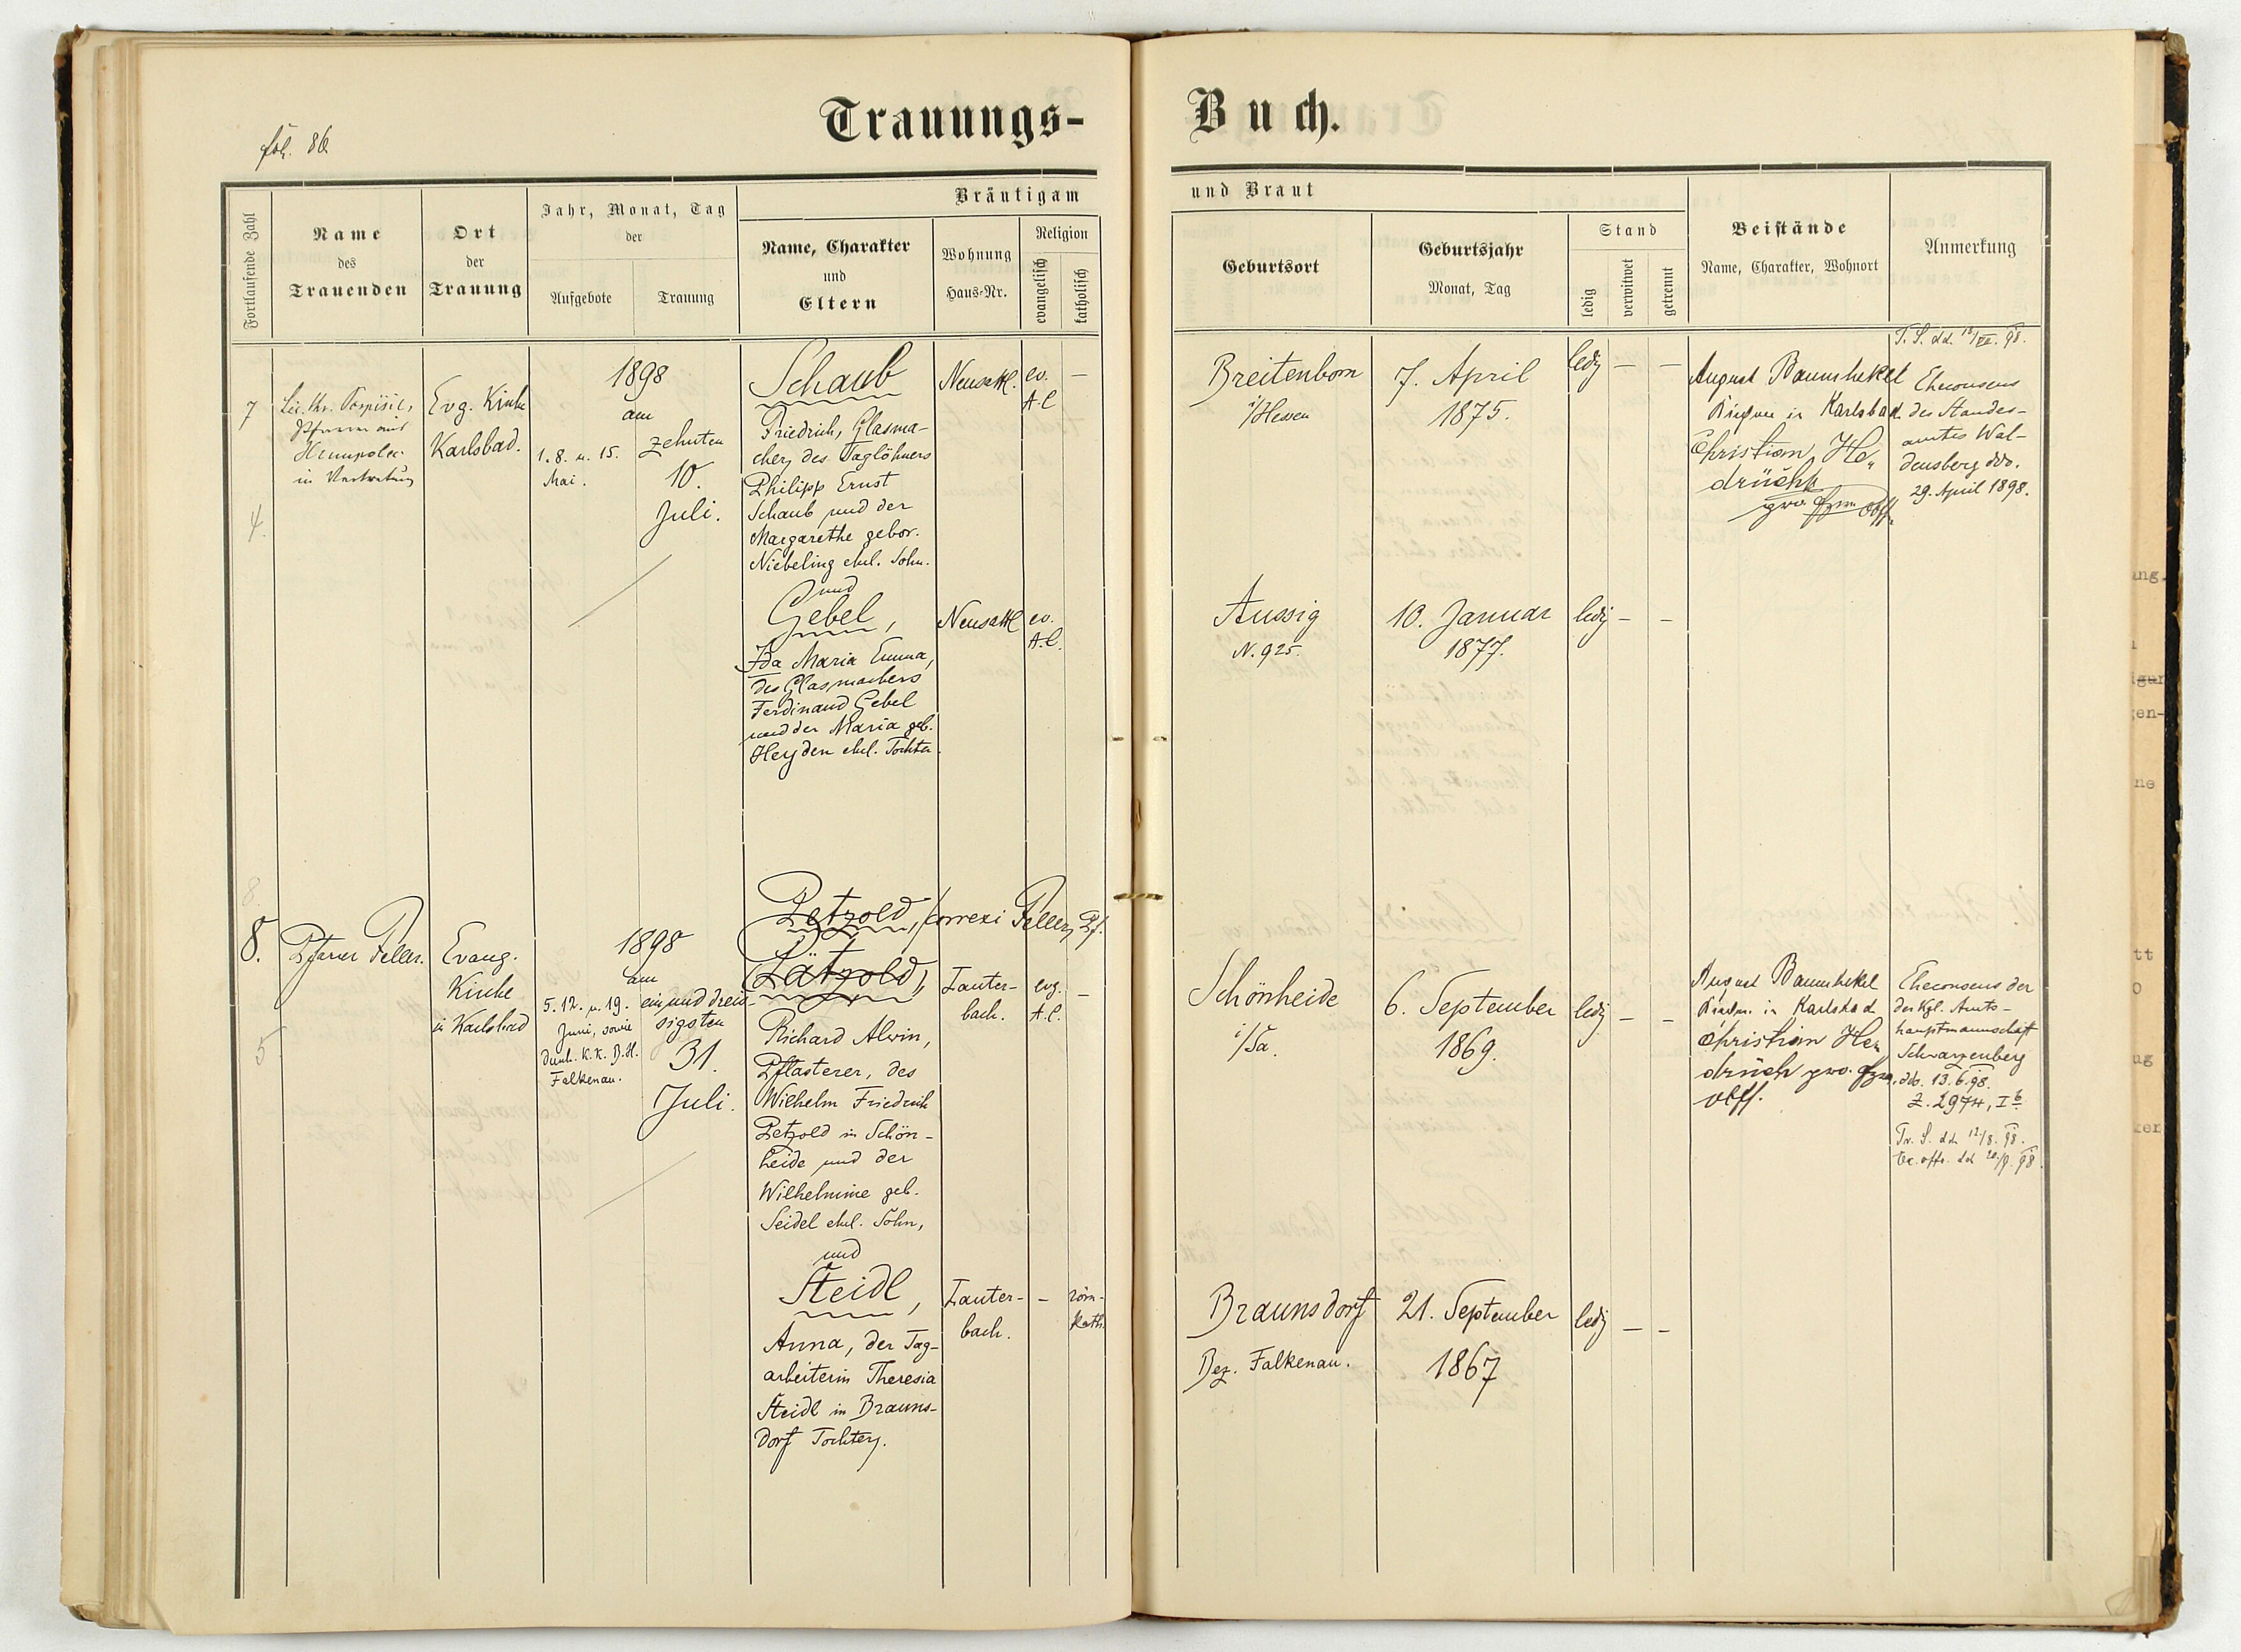 fol. 86
Trauungs-
Buch.
Fortlaufende Zahl
Name
des
Trauenden
Ort
der
Trauung
Jahr, Monat, Tag
der
Aufgebote
Trauung
Bräutigam
Name, Charakter
und
Eltern
Wohnung
Haus-Nr.
Religion
evangelisch
katholisch
und Braut
Geburtsort
Geburtsjahr
Monat, Tag
Stand
ledig
verwitwet
getrennt
Beistände
Name, Charakter, Wohnort
Anmerkung
7
4.
Pospisil,
Pfarrer aus
Humpolec
in Vertretung
Evg. Kirche
Karlsbad.
1. 8. u. 15.
Mai.
1898
am
zehnten
10.
Juli.
Schaub
Friedrich, Glasma-
cher, des Taglöhners
Philipp Ernst
Schaub und der
Margarethe gebor.
Niebeling ehel. Sohn.
und
Gebel,
Ida Maria Emma,
des Glasmachers
Ferdinand Gebel
und der Maria geb.
Heyden ehel. Tochter.
Neusattl.
ev.
A.C.
—
Neusattl
ev.
A.C.
Breitenborn
i/Hessen
7. April
1875.
ledig — —
Aussig
N. 925.
10. Januar
1877.
ledig — —
August Baumhekel
in Karlsbad
Christian He„
drüch
T. S. dd.
Eheconsens
des Standes-
amtes Wal-
densberg ddo.
29. April 1898.
8.
8.
5
Pfarrer Feller.
Evang.
Kirche
in Karlsbad
5. 12. u. 19.
Juni, sowie
durch K.K. B.H.
Falkenau.
1898
am
einunddreis-
sigsten
31.
Juli.
Petzold, correxi Feller, Pf.
Pätzold,
Richard Alwin,
Pflasterer, des
Wilhelm Friedrich
Petzold in Schön-
heide und der
Wilhelmine geb.
Seidel ehel. Sohn,
und
Steidl,
Anna, der Tag-
arbeiterin Theresia
Steidl in Brauns-
dorf Tochter.
Lauter-
bach.
evg.
A.C.
—
Lauter-
bach.
—
röm-
kath.
Schönheide
i/Sa.
6. September
1869.
ledig — —
Braunsdorf
Bez. Falkenau.
21. September
1867
ledig — —
August Baumhekel
in Karlsbad
Christian He„
drüch
Eheconsens der
der Kgl. Amts-
hauptmannschaft
Schwarzenberg
ddo. 13. 6. 98.
Z. 2974, I b
Tr. S. dd 12/8. 98.